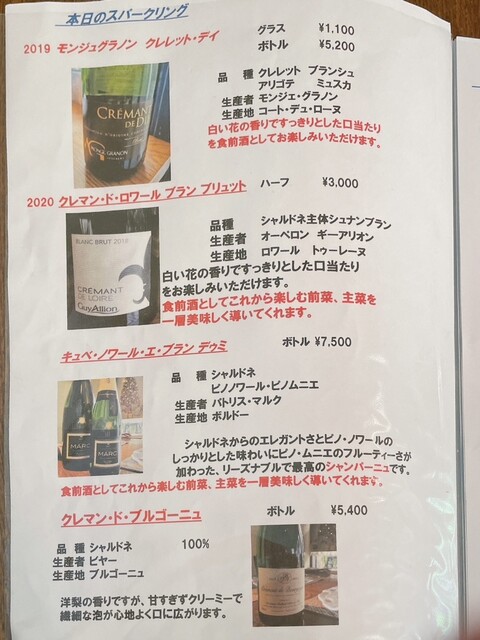 本日のスパークリング
2019 モンジュグラノン クレレット・デイ グラス ¥1,100
ボトル ¥5,200
品 種 クレレット ブランシュ
アリゴテ ミュスカ
生産者 モンジェ・グラノン
生産地 コート・デュ・ローヌ
白い花の香りですっきりとした口当たり
を食前酒としてお楽しみいただけます。
CRÉMANT
DE D
MONGE GRANON
2020 クレマン・ド・ロワール ブラン ブリュット ハーフ ¥3,000
品種 シャルドネ主体シュナンブラン
生産者 オーベロン ギーアリオン
生産地 ロワール トゥーレーヌ
BLANC BRUT 2018
CRÉMANT
DE LOIRE
Guy Allion
白い花の香りですっきりとした口当たり
をお楽しみいただけます。
食前酒としてこれから楽しむ前菜、主菜を
一層美味しく導いてくれます。
キュベ・ノワール・エ・ブラン デゥミ ボトル ¥7,500
品 種 シャルドネ
ピノノワール・ピノムニエ
生産者 パトリス・マルク
生産地 ボルドー
MARC
MARC
シャルドネからのエレガントさとピノ・ノワールの
しっかりとした味わいにピノ・ムニエのフルーティーさが
加わった、リーズナブルで最高のシャンパーニュです。
食前酒としてこれから楽しむ前菜、主菜を一層美味しく導いてくれます。
クレマン・ド・ブルゴーニュ ボトル ¥5,400
品 種 シャルドネ 100%
生産者 ピヤー
生産地 ブルゴーニュ
洋梨の香りですが、甘すぎずクリーミーで
繊細な泡が心地よく口に広がります。